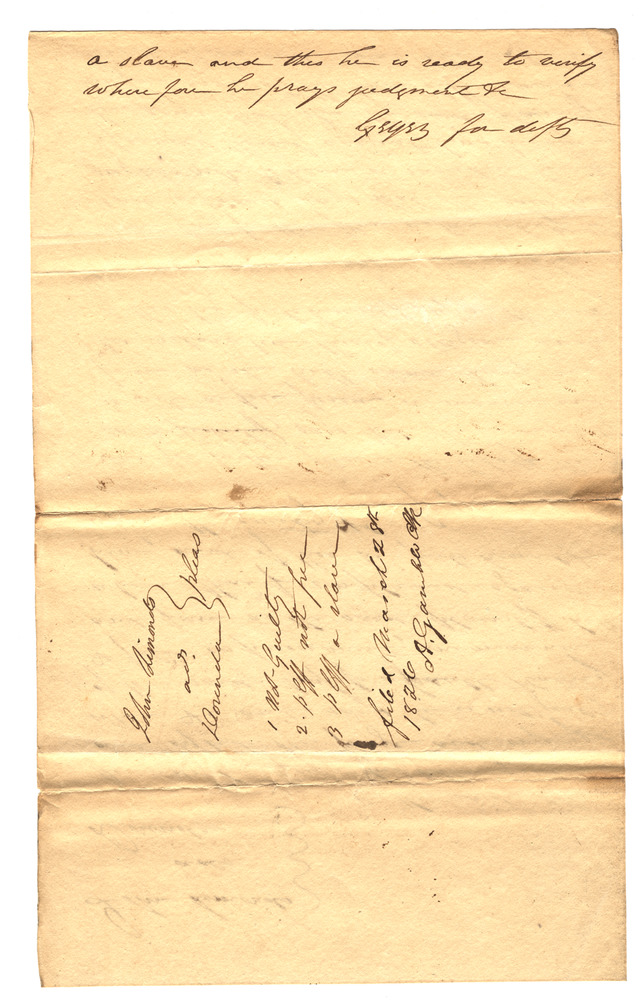 a slave and this he is ready to verify
wherefore he prays judgment &c
Geyer for deft
John Simonds
ads.
Dorinda
pleas
1 Not Guilty
2. plff not free
3 plff a slave
filed March 28th
1826
A. Gamble Clk